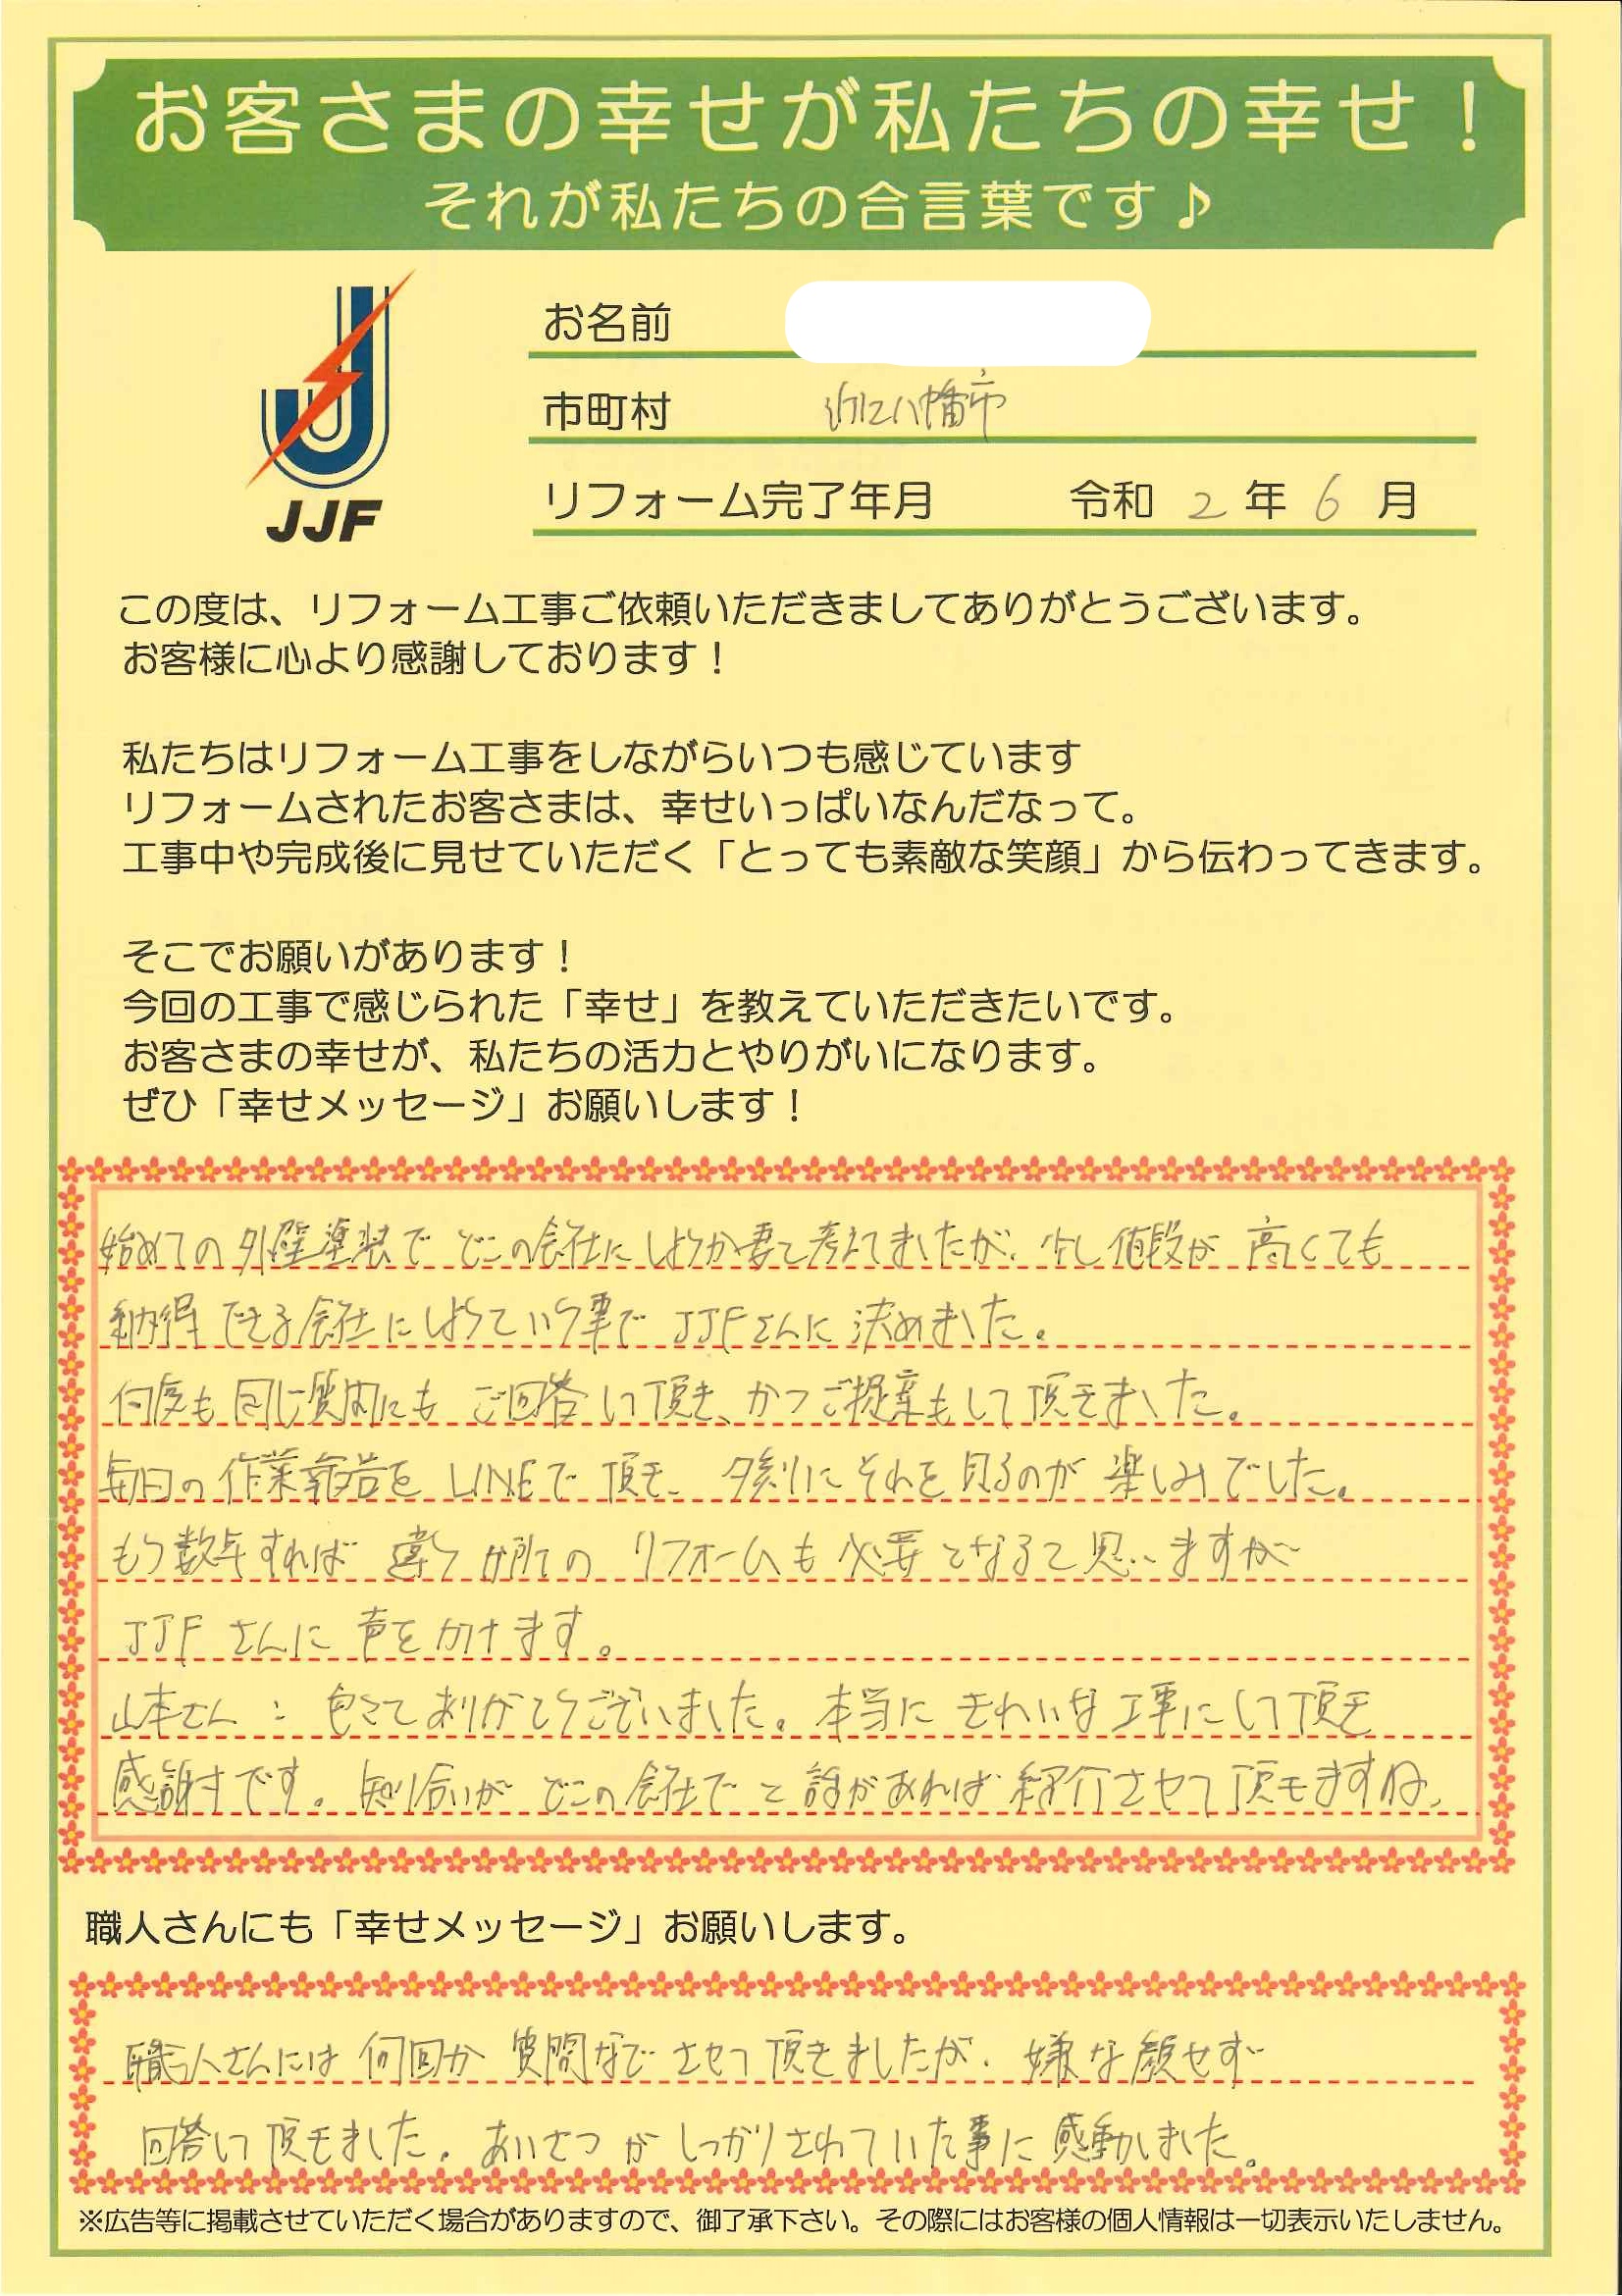 お客さまの幸せが私たちの幸せ！
それが私たちの合言葉です♪
JJF
お名前
市町村 近江八幡市
リフォーム完了年月 令和 2 年 6 月
この度は、リフォーム工事ご依頼いただきましてありがとうございます。
お客様に心より感謝しております！
私たちはリフォーム工事をしながらいつも感じています
リフォームされたお客さまは、幸せいっぱいなんだなって。
工事中や完成後に見せていただく「とっても素敵な笑顔」から伝わってきます。
そこでお願いがあります！
今回の工事で感じられた「幸せ」を教えていただきたいです。
お客さまの幸せが、私たちの活力とやりがいになります。
ぜひ「幸せメッセージ」お願いします！
始めての外壁塗装で どこの会社にしようか妻と考えてましたが、少し値段が 高くても
納得できる会社にしようという事で JJFさんに 決めました。
何度も同じ質問にも ご回答して頂き、かつご提案もして頂きました。
毎日の作業報告を LINEで 頂き、夕刻にそれを見るのが 楽しみでした。
もう数年すれば 違う か所での リフォームも 必要 となると思いますが
JJF さんに 声をかけます。
山本さん： 色々とありがとうございました。本当に きれいな工事にして頂き
感謝です。知り合いが どこの会社で と話があれば 紹介させて頂きますね、
職人さんにも「幸せメッセージ」お願いします。
職人さんには 何回か 質問などさせて頂きましたが、嫌な顔せず
回答して頂きました。あいさつ が しっかりされていた事に 感動しました。
※広告等に掲載させていただく場合がありますので、御了承下さい。その際にはお客様の個人情報は一切表示いたしません。